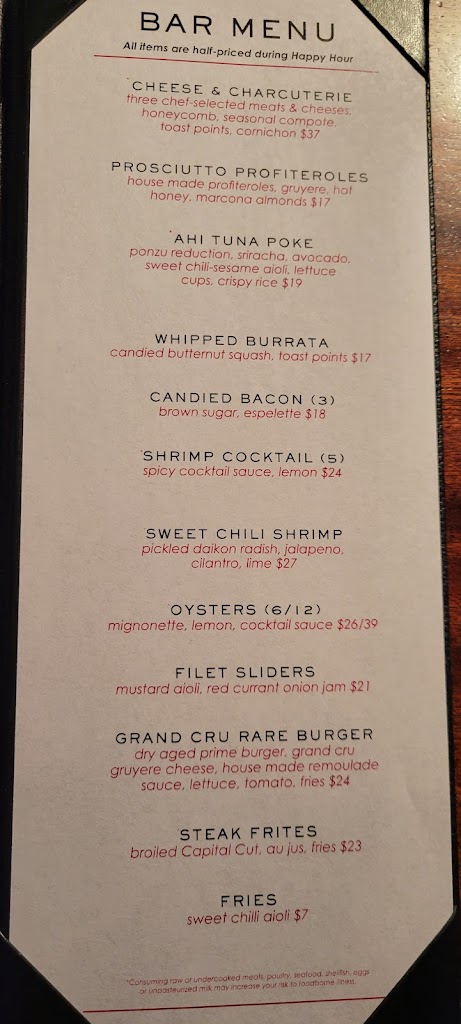 BAR MENU
All items are half-priced during Happy Hour
*CHEESE & CHARCUTERIE
three chef-selected meats & cheeses,
honeycomb, seasonal compote,
toast points, cornichon $37
PROSCIUTTO PROFITEROLES
house made profiteroles, gruyere, hot
honey, marcona almonds $17
*AHI TUNA POKE
ponzu reduction, sriracha, avocado,
sweet chili-sesame aioli, lettuce
cups, crispy rice $19
WHIPPED BURRATA
candied butternut squash, toast points $17
CANDIED BACON (3)
brown sugar, espelette $18
*SHRIMP COCKTAIL (5)
spicy cocktail sauce, lemon $24
SWEET CHILI SHRIMP
pickled daikon radish, jalapeno,
cilantro, lime $27
OYSTERS (6/12)
mignonette, lemon, cocktail sauce $26/39
FILET SLIDERS
mustard aioli, red currant onion jam $21
GRAND CRU RARE BURGER
dry aged prime burger, grand cru
gruyere cheese, house made remoulade
sauce, lettuce, tomato, fries $24
STEAK FRITES
broiled Capital Cut, au jus, fries $23
FRIES
sweet chilli aioli $7
*Consuming raw or undercooked meats, poultry, seafood, shellfish, eggs
or unpasteurized milk may increase your risk to foodborne illness.